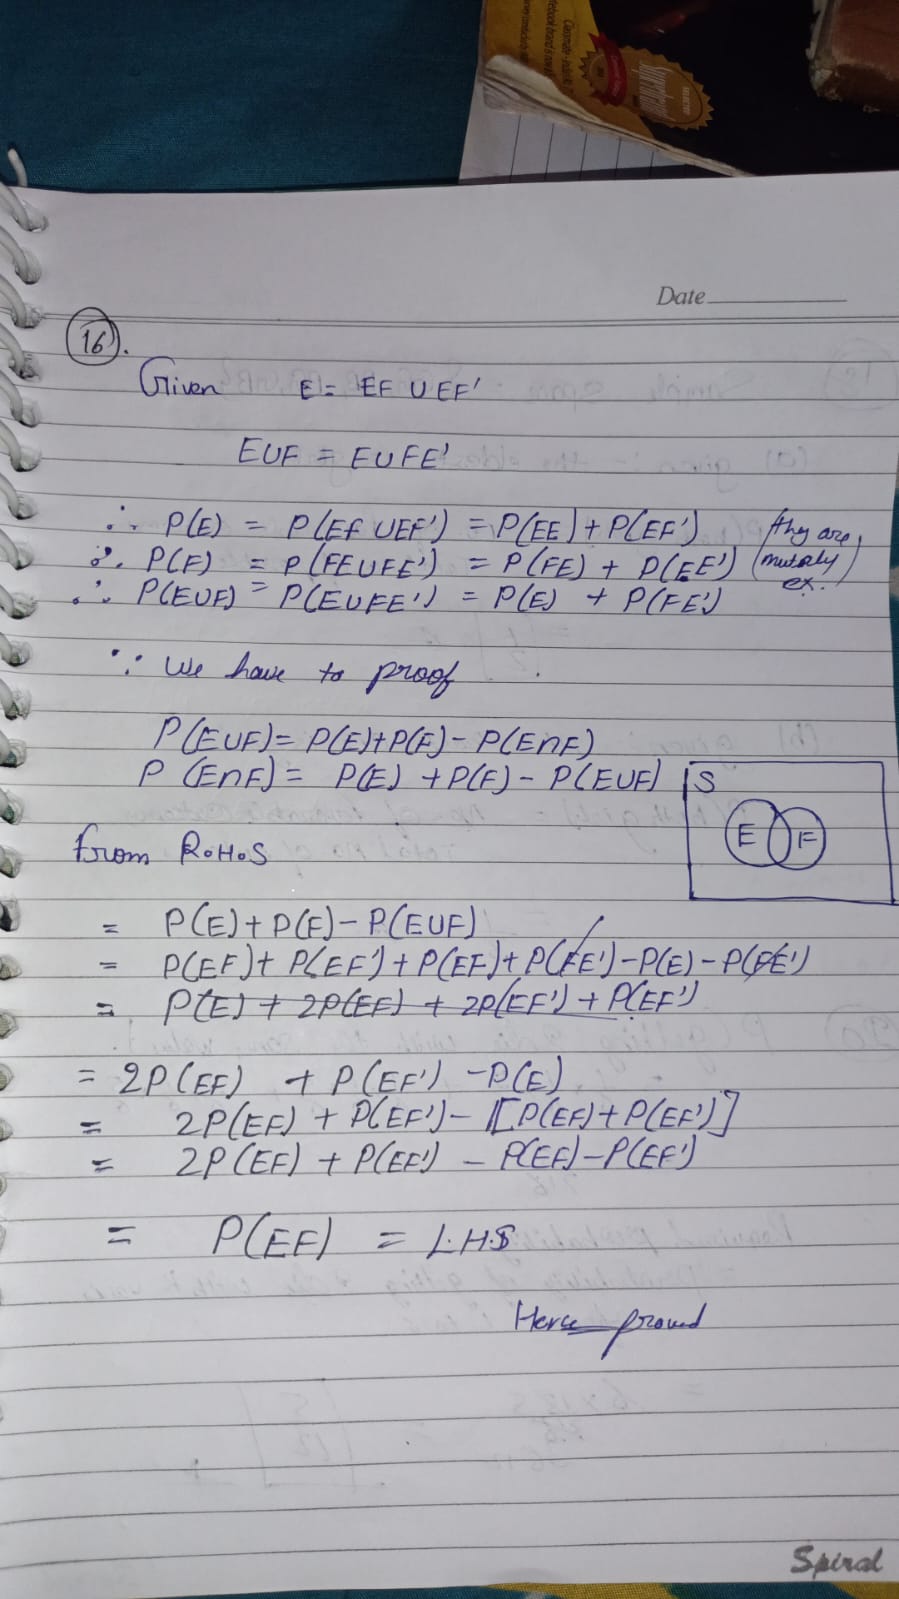 Classmate
Superdeal
Date
16.
Given E = EF ∪ EF'
E∪F = E∪FE'
∴ P(E) = P(EF ∪EF') = P(EE) + P(EF') (they are
∴ P(F) = P(FE∪FE') = P(FE) + P(EE') mutaly)
∴ P(E∪F) = P(E∪FE') = P(E) + P(FE') ex.
∵ we have to proof
P(E∪F) = P(E)+P(F) - P(E∩F)
P(E∩F) = P(E) + P(F) - P(E∪F) S
E F
from R.H.S
= P(E) + P(F) - P(E∪F)
= P(EF) + P(EF') + P(EF) + P(FE') - P(E) - P(FE')
= P(E) + 2P(EF) + 2P(EF') + P(EF')
= 2P(EF) + P(EF') - P(E)
= 2P(EF) + P(EF') - [P(EF) + P(EF')]
= 2P(EF) + P(EF') - P(EF) - P(EF')
= P(EF) = L.H.S
Hence proved
Spiral